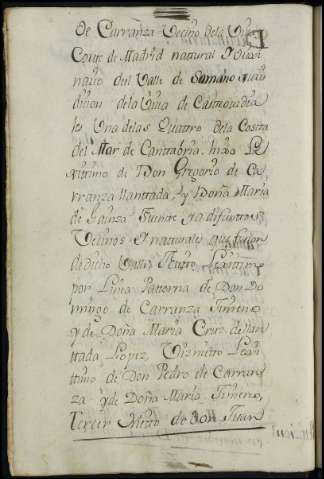 de Carranza Vecino dela Villa
Corte de Madrid natural Y Origi
nario del Valle de Samano Juris
dicion dela Villa de Castrourdia
les Una delas Quattro dela Costa
del Mar de Canttabria, hixo Le
xittimo de Don Gregorio de Ca
rranza Llanttada, y Doña Maria
de Lainza Fuente ya difunttos
Vecinos Y naturales que fueron
de dicho Valle Nietto Lexittimo
por Linea Patterna de Don Do
mingo de Carranza Ximeno
y de Doña Maria Cruz de Llan
ttada Lopez Viznietto Lexit
ttimo de Don Pedro de Carran
za y de Doña Maria Ximeno,
Tercer Nietto de Don Juan